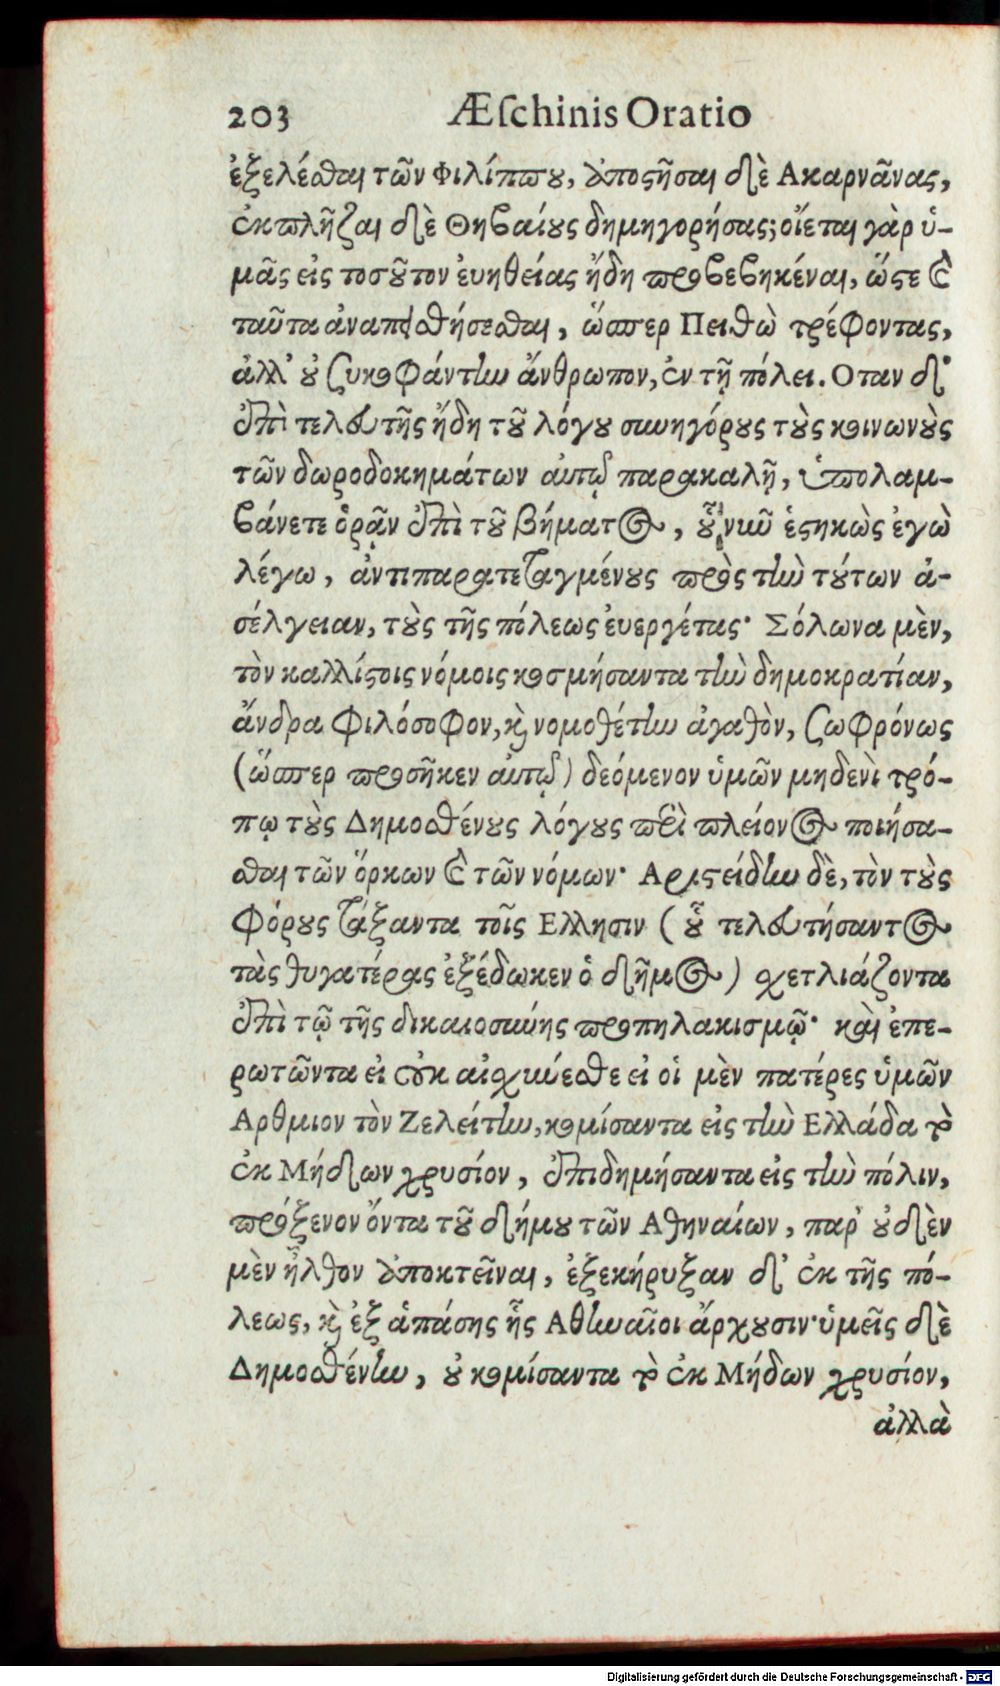 203 Æſchinis Oratio
ἐξελέσθαι τῶν Φιλίππου, ἀποστῆσαι δὲ Ακαρνᾶνας,
ἐκπλῆξαι δὲ Θηβαίους δημηγορήσας; οἴεται γὰρ ὑ-
μᾶς εἰς τοσοῦτον ἐυηθείας ἤδη προβεβηκέναι, ὥστε καὶ
ταῦτα ἀναπεισθήσεσθαι, ὥσπερ Πειθὼ τρέφοντας,
ἀλλ' οὐ συκοφάντην ἄνθρωπον, ἐν τῇ πόλει. Οταν δ'
ἐπὶ τελευτῆς ἤδη τοῦ λόγου συνηγόρους τοὺς κοινωνοὺς
τῶν δωροδοκημάτων αὐτῷ παρακαλῇ, ὑπολαμ-
βάνετε ὁρᾷν ἐπὶ τοῦ βήματος, οὗ νῦν ἑστηκὼς ἐγὼ
λέγω, ἀντιπαρατεταγμένους πρὸς τὴν τούτων ἀ-
σέλγειαν, τοὺς τῆς πόλεως ἐυεργέτας· Σόλωνα μὲν,
τὸν καλλίστοις νόμοις κοσμήσαντα τὴν δημοκρατίαν,
ἄνδρα φιλόσοφον, καὶ νομοθέτην ἀγαθὸν, σωφρόνως
(ὥσπερ προσῆκεν αὐτῷ) δεόμενον ὑμῶν μηδενὶ τρό-
πῳ τοὺς Δημοσθένους λόγους περὶ πλείονος ποιήσα-
σθαι τῶν ὅρκων καὶ τῶν νόμων· Αριστείδην δὲ, τὸν τοὺς
φόρους τάξαντα τοῖς Ελλησιν (οὗ τελευτήσαντος
τὰς θυγατέρας ἐξέδωκεν ὁ δῆμος) σχετλιάζοντα
ἐπὶ τῷ τῆς δικαιοσύνης προπηλακισμῷ· καὶ ἐπε-
ρωτῶντα εἰ οὐκ αἰσχύνεσθε εἰ οἱ μὲν πατέρες ὑμῶν
Αρθμιον τὸν Ζελείτην, κομίσαντα εἰς τὴν Ελλάδα τὸ
ἐκ Μήδων χρυσίον, ἐπιδημήσαντα εἰς τὴν πόλιν,
πρόξενον ὄντα τοῦ δήμου τῶν Αθηναίων, παρ' οὐδὲν
μὲν ἦλθον ἀποκτεῖναι, ἐξεκήρυξαν δ' ἐκ τῆς πό-
λεως, καὶ ἐξ ἁπάσης ἧς Αθηναῖοι ἄρχουσιν· ὑμεῖς δὲ
Δημοσθένην, οὐ κομίσαντα τὸ ἐκ Μήδων χρυσίον,
ἀλλὰ
Digitalisierung gefördert durch die Deutsche Forschungsgemeinschaft - DFG